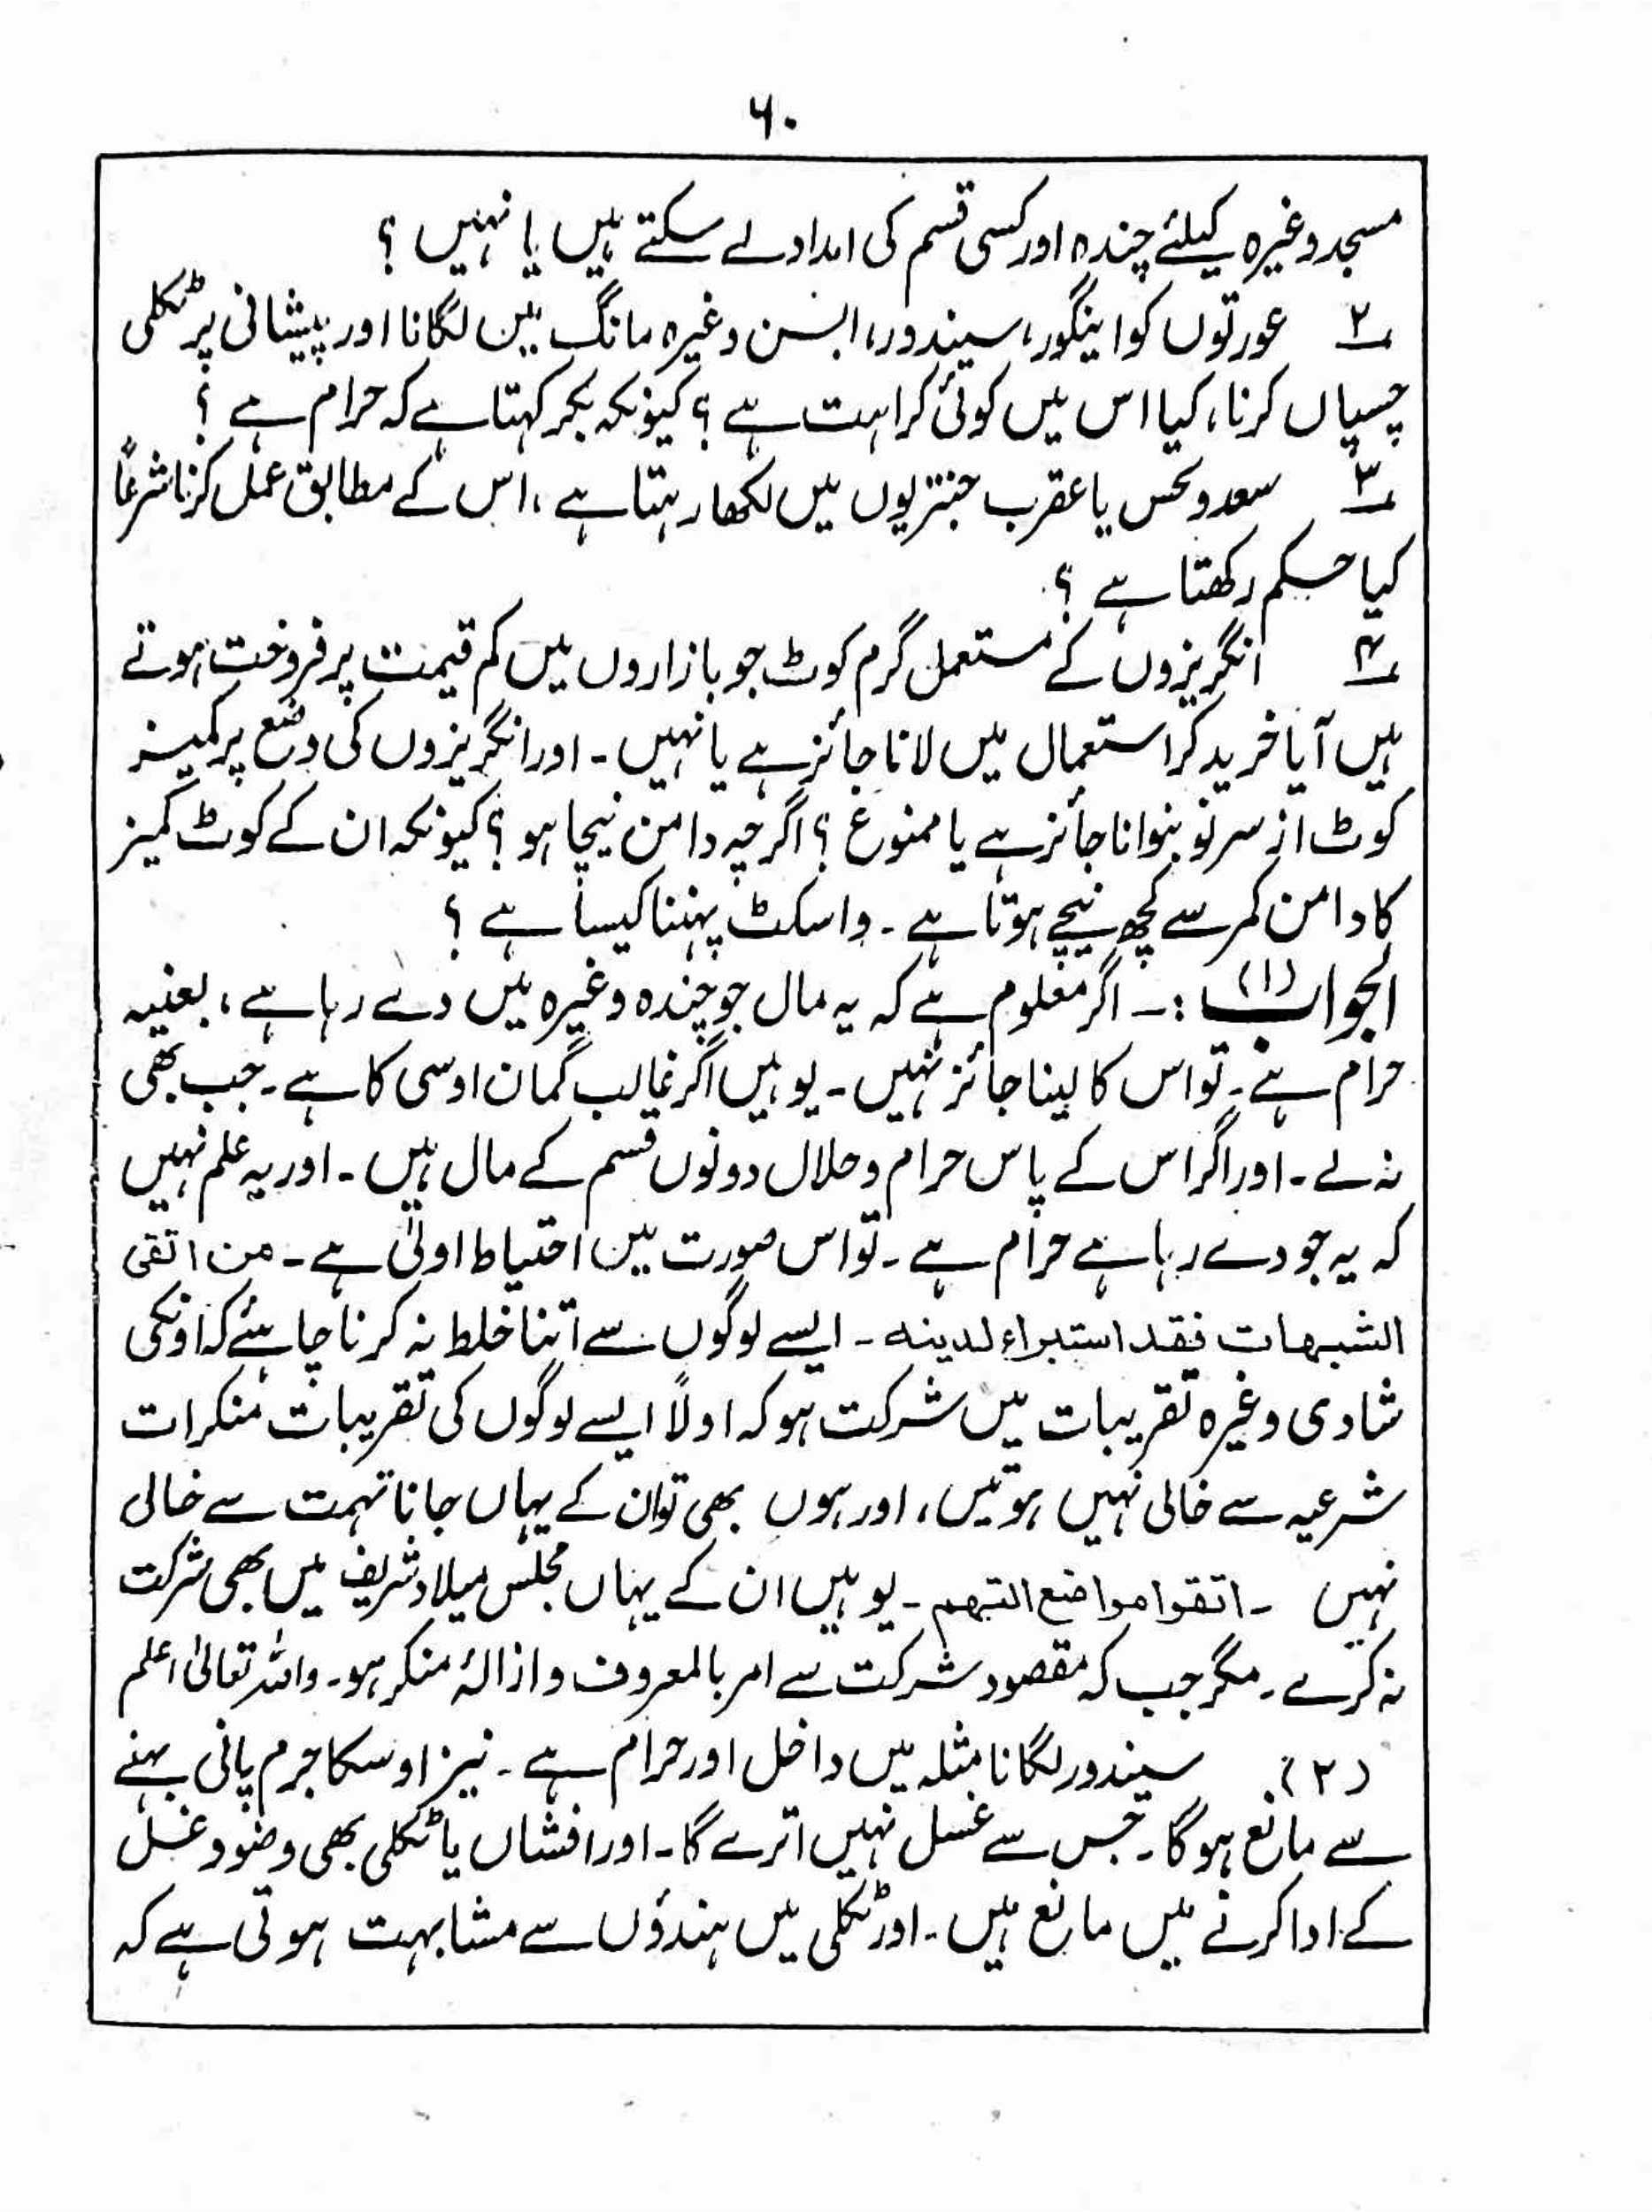 ۶۰
مسجد وغیرہ کیلئے چندہ اور کسی قسم کی امداد لے سکتے ہیں یا نہیں ؟
۲ عورتوں کو اینگور، سیندور، ابسن وغیرہ مانگ میں لگانا اور پیشانی پر ٹکلی
چسپاں کرنا، کیا اس میں کوئی کراہت ہے ؟ کیونکہ بکر کہتا ہے کہ حرام ہے ؟
۳ سعد و نحس یا عقرب جنتریوں میں لکھا رہتا ہے ، اس کے مطابق عمل کرنا شرعاً
کیا حکم رکھتا ہے ؟
۴ انگریزوں کے مستعمل گرم کوٹ جو بازاروں میں کم قیمت پر فروخت ہوتے
ہیں آیا خرید کر استعمال میں لانا جائز ہے یا نہیں ۔ اور انگریزوں کی وضع پر کمیز
کوٹ از سر نو بنوانا جائز ہے یا ممنوع ؟ اگرچہ دامن نیچا ہو ؟ کیونکہ ان کے کوٹ کمیز
کا دامن کمر سے کچھ نیچے ہوتا ہے ۔ واسکٹ پہننا کیسا ہے ؟
الجواب (۱) :۔ اگر معلوم ہے کہ یہ مال جو چندہ وغیرہ میں دے رہا ہے ، بعینہ
حرام ہے ۔ تو اس کا لینا جائز نہیں ۔ یوہیں اگر غالب گمان اوسی کا ہے ۔ جب بھی
نہ لے ۔ اور اگر اس کے پاس حرام و حلال دونوں قسم کے مال ہیں ۔ اور یہ علم نہیں
کہ یہ جو دے رہا ہے حرام ہے ۔ تو اس صورت میں احتیاط اولیٰ ہے ۔ من اتقی
الشبهات فقد استبراء لدینه ۔ ایسے لوگوں سے اتنا خلط نہ کرنا چاہئے کہ اونکی
شادی وغیرہ تقریبات میں شرکت ہو کہ اولاً ایسے لوگوں کی تقریبات منکرات
شرعیہ سے خالی نہیں ہوتیں ، اور ہوں بھی تو ان کے یہاں جانا تہمت سے خالی
نہیں ۔ اتقوا مواضع التهم ۔ یوہیں ان کے یہاں مجلس میلاد شریف میں بھی شرکت
نہ کرے ۔ مگر جب کہ مقصود شرکت سے امر بالمعروف و ازالۂ منکر ہو ۔ واللہ تعالیٰ اعلم
(۲) سیندور لگانا مثلہ میں داخل اور حرام ہے ۔ نیز اوسکا جرم پانی بہنے
سے مانع ہوگا ۔ جس سے غسل نہیں اترے گا ۔ اور افشاں یا ٹکلی بھی وضو و غسل
کے ادا کرنے میں مانع ہیں ۔ اور ٹکلی میں ہندوؤں سے مشابہت ہوتی ہے کہ